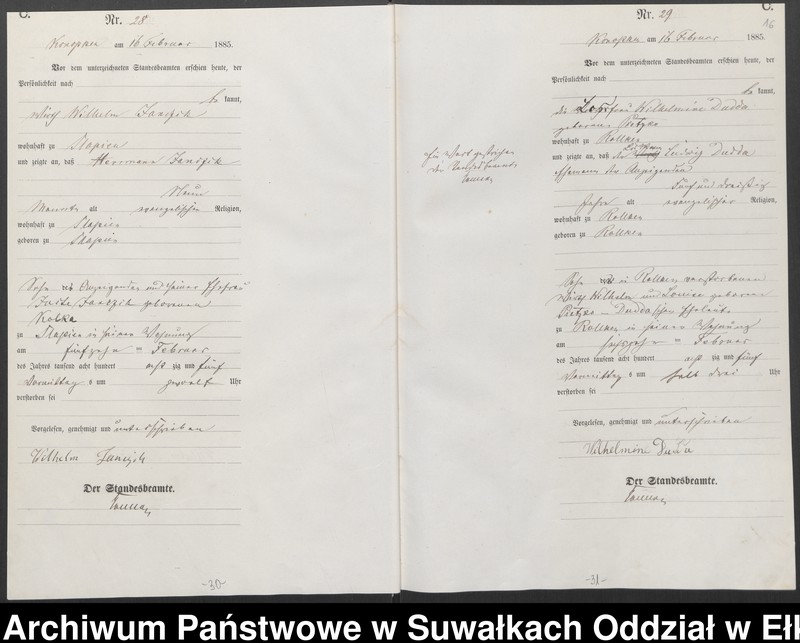 C.
Nr. 28
am 16 Februar 1885.
Vor dem unterzeichneten Standesbeamten erschien heute, der
Persönlichkeit nach
be kannt,
Wirth Wilhelm Janczik
wohnhaft zu
und zeigte an, daß Herrmann Janczik
Neun
Monate alt evangelischer Religion,
wohnhaft zu
geboren zu
Sohn des Anzeigenden und seiner Ehefrau
Janczik geborenen
zu in seiner Wohnung
am fünfzehn ten Februar
des Jahres tausend acht hundert acht zig und fünf
Vormittags um zwoelf Uhr
verstorben sei
Vorgelesen, genehmigt und unterschrieben
Wilhelm Janczik
Der Standesbeamte.
-30-
C.
16
Nr. 29
am 16 Februar 1885.
Vor dem unterzeichneten Standesbeamten erschien heute, der
Persönlichkeit nach
be kannt,
die frau Wilhelmine Dudda
geborene Pietzko
wohnhaft zu
und zeigte an, daß der Ludwig Dudda
Ehemann der Anzeigenden
Fünf und dreißig
Jahre alt evangelischer Religion,
wohnhaft zu
geboren zu
Sohn des in verstorbenen
Wirth Wilhelm und Louise geborene
Pietzko Dudda'schen Eheleute
zu in seiner Wohnung
am sechszehn ten Februar
des Jahres tausend acht hundert acht zig und fünf
Vormittags um halb drei Uhr
verstorben sei
Vorgelesen, genehmigt und unterschrieben
Wilhelmine Duda
Der Standesbeamte.
Ein Wort gestrichen
Der Standesbeamte
-31-
Archiwum Państwowe w Suwałkach Oddział w Eł